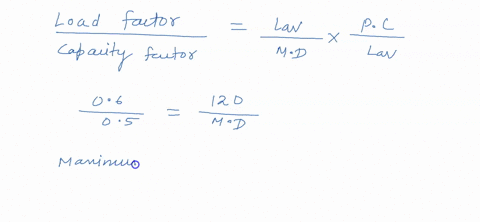 Load factor / Capacity factor = Lav / M.D × P.C / Lav
0.6 / 0.5 = 120 / M.D
Maximu